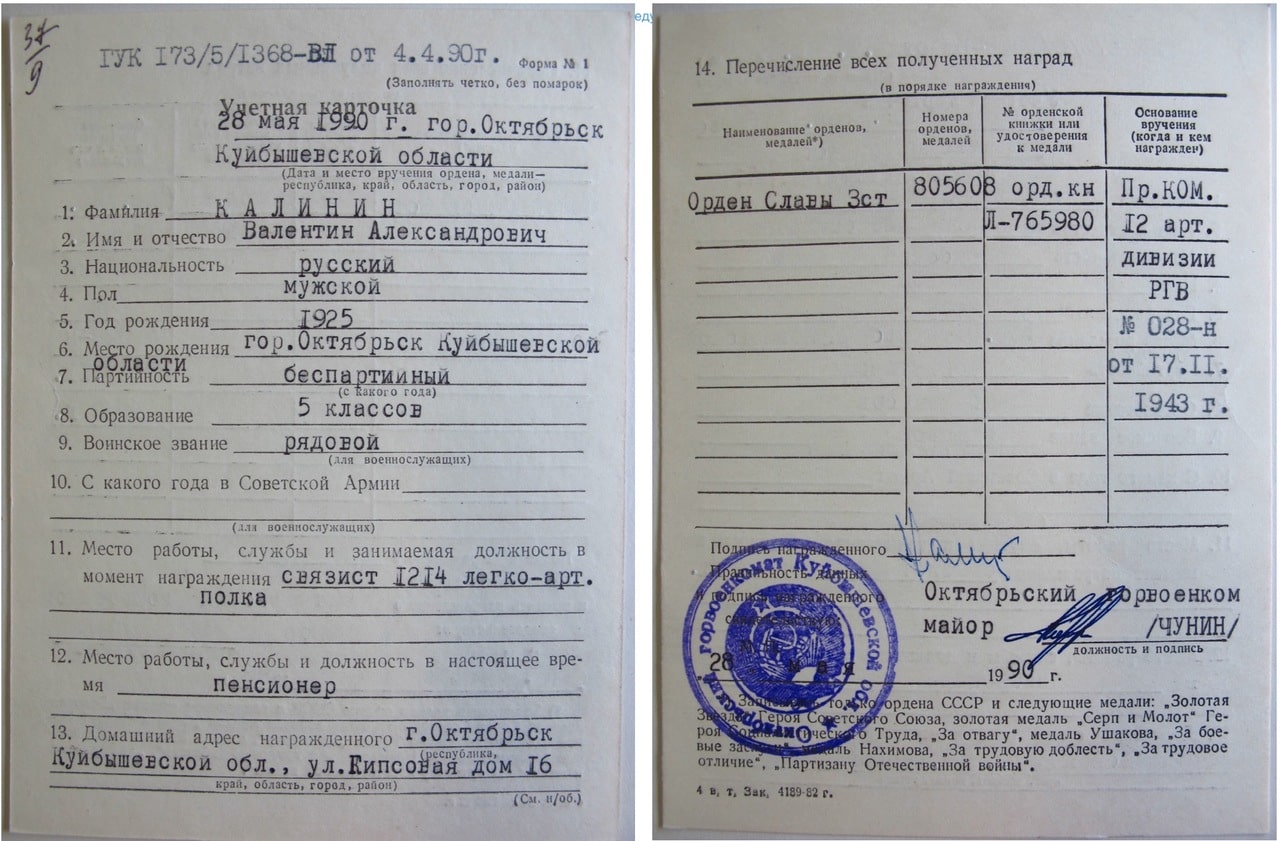 37
9
ГУК 173/5/1368-ВЛ от 4.4.90г. Форма № 1
(Заполнять четко, без помарок)
Учетная карточка
28 мая 1990 г. гор.Октябрьск
Куйбышевской области
(Дата и место вручения ордена, медали—
республика, край, область, город, район)
1. Фамилия КАЛИНИН
2. Имя и отчество Валентин Александрович
3. Национальность русский
4. Пол мужской
5. Год рождения 1925
6. Место рождения гор.Октябрьск Куйбышевской
области
7. Партийность беспартийный
(с какого года)
8. Образование 5 классов
9. Воинское звание рядовой
(для военнослужащих)
10. С какого года в Советской Армии
(для военнослужащих)
11. Место работы, службы и занимаемая должность в
момент награждения связист 1214 легко-арт.
полка
12. Место работы, службы и должность в настоящее вре-
мя пенсионер
13. Домашний адрес награжденного г.Октябрьск
(республика,
Куйбышевской обл., ул.Гипсовая дом 16
край, область, город, район)
(См. н/об.)
еду
14. Перечисление всех полученных наград
(в порядке награждения)
Наименование орденов,
медалей*)
Номера
орденов,
медалей
№ орденской
книжки или
удостоверения
к медали
Основание
вручения
(когда и кем
награжден)
Орден Славы 3ст 805608 орд.кн Пр.КОМ.
Л-765980 12 арт.
дивизии
РГВ
№ 028-н
от 17.II.
1943 г.
Подпись награжденного
Правильность данных
и подпись награжденного
свидетельствую
Октябрьский горвоенком
майор /ЧУНИН/
должность и подпись
М.П.
28 мая 1990 г.
Октябрьский горвоенкомат Куйбышевской обл.
Записывать только ордена СССР и следующие медали: „Золотая
Звезда" Героя Советского Союза, золотая медаль „Серп и Молот" Ге-
роя Социалистического Труда, „За отвагу", медаль Ушакова, „За бое-
вые заслуги", медаль Нахимова, „За трудовую доблесть", „За трудовое
отличие", „Партизану Отечественной войны".
4 в, т, Зак, 4189-82 г.